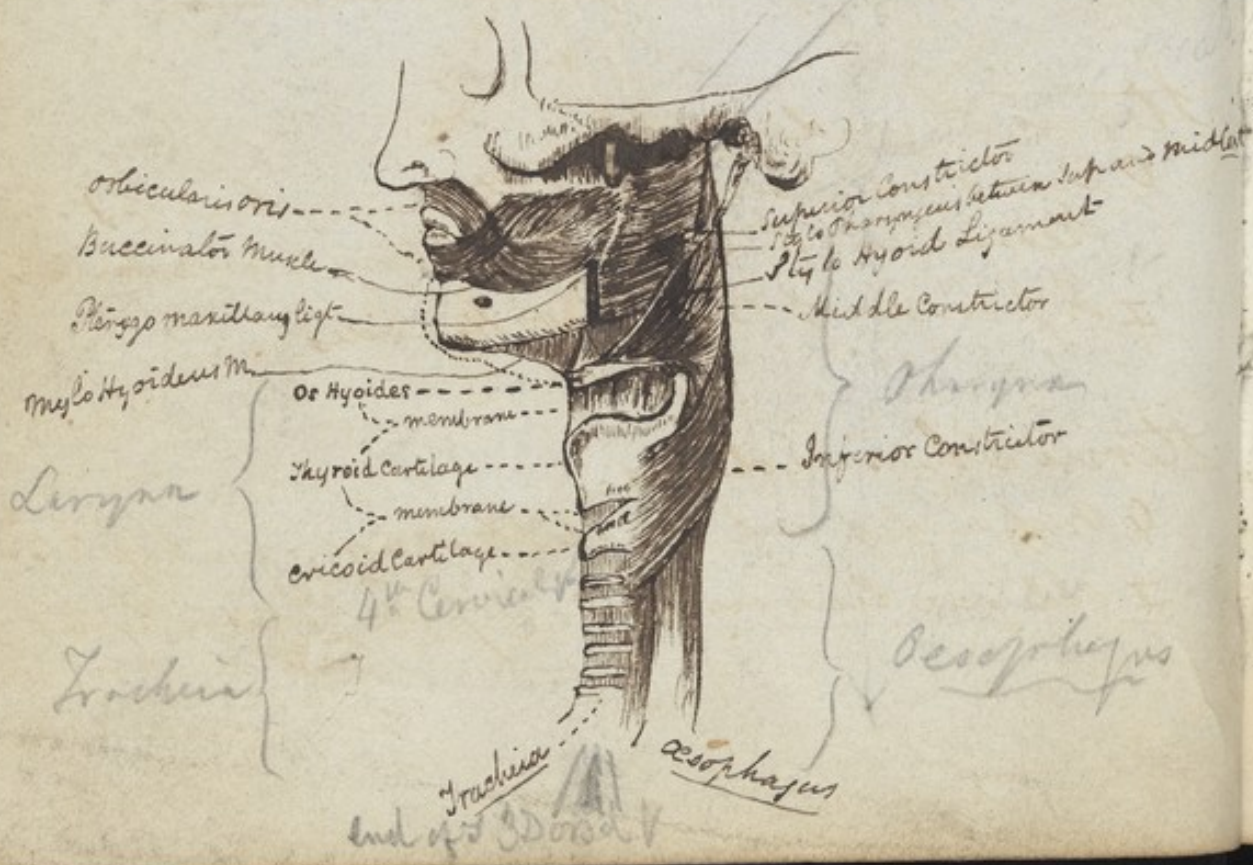 Orbicularis oris
Buccinator Muscle
Pterygo maxillary ligt
Mylo Hyoideus M
Os Hyoides
membrane
Thyroid Cartilage
membrane
Cricoid Cartilage
Larynx
4th Cervical
Tracheia
Superior Constrictor
Stylo Pharyngeus between Sup and Midl
Stylo Hyoid Ligament
Middle Constrictor
Pharynx
Inferior Constrictor
Oesophagus
Tracheia
Œsophagus
end of 3 Dorsal V